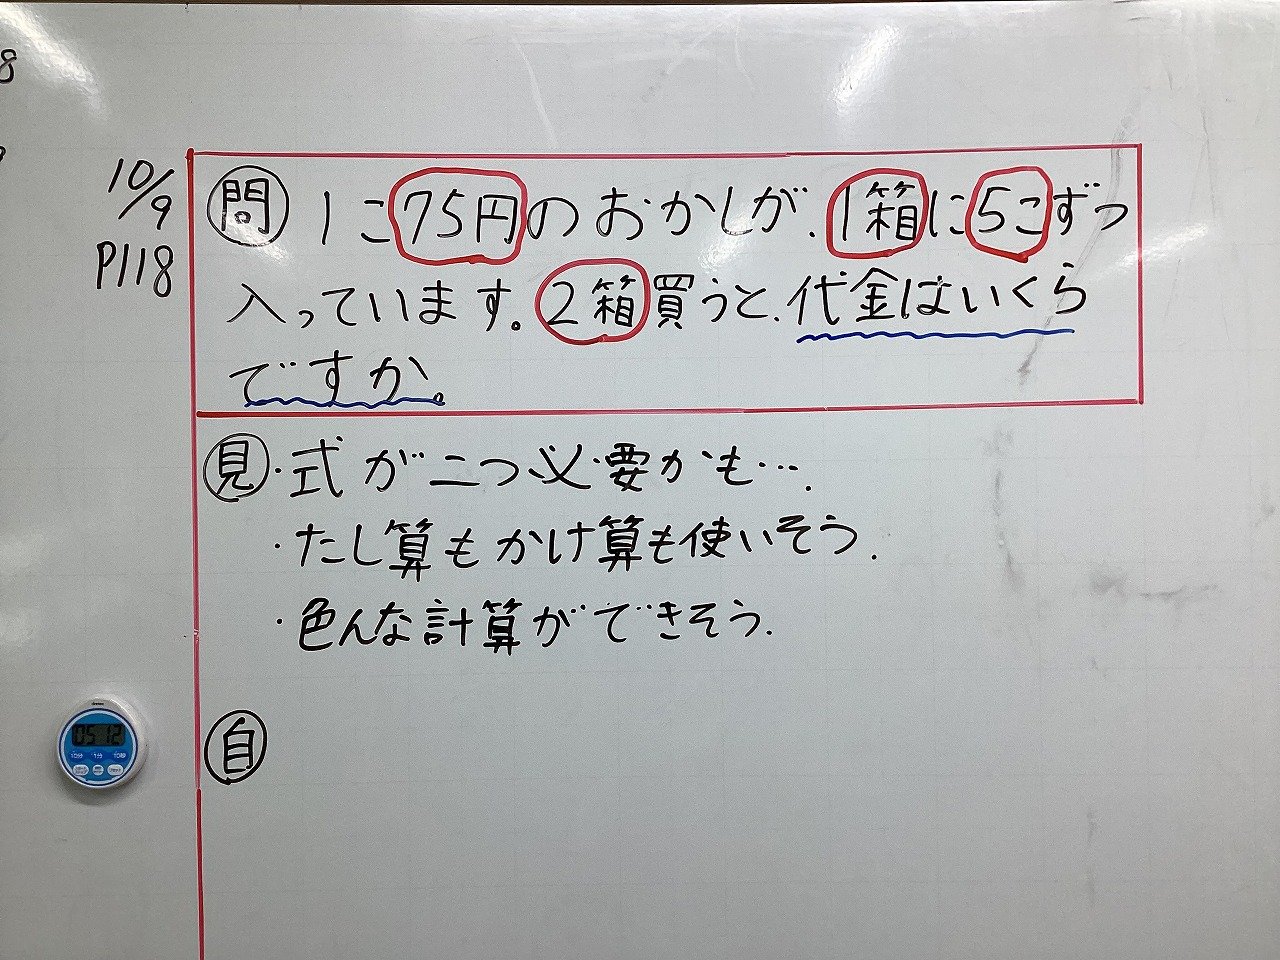 8
10/9
P118
問 1こ75円のおかしが、1箱に5こずつ
入っています。2箱買うと、代金はいくら
ですか。
見・式が二つ必要かも…。
・たし算もかけ算も使いそう。
・色んな計算ができそう。
自
05 12
10分 1分 10秒